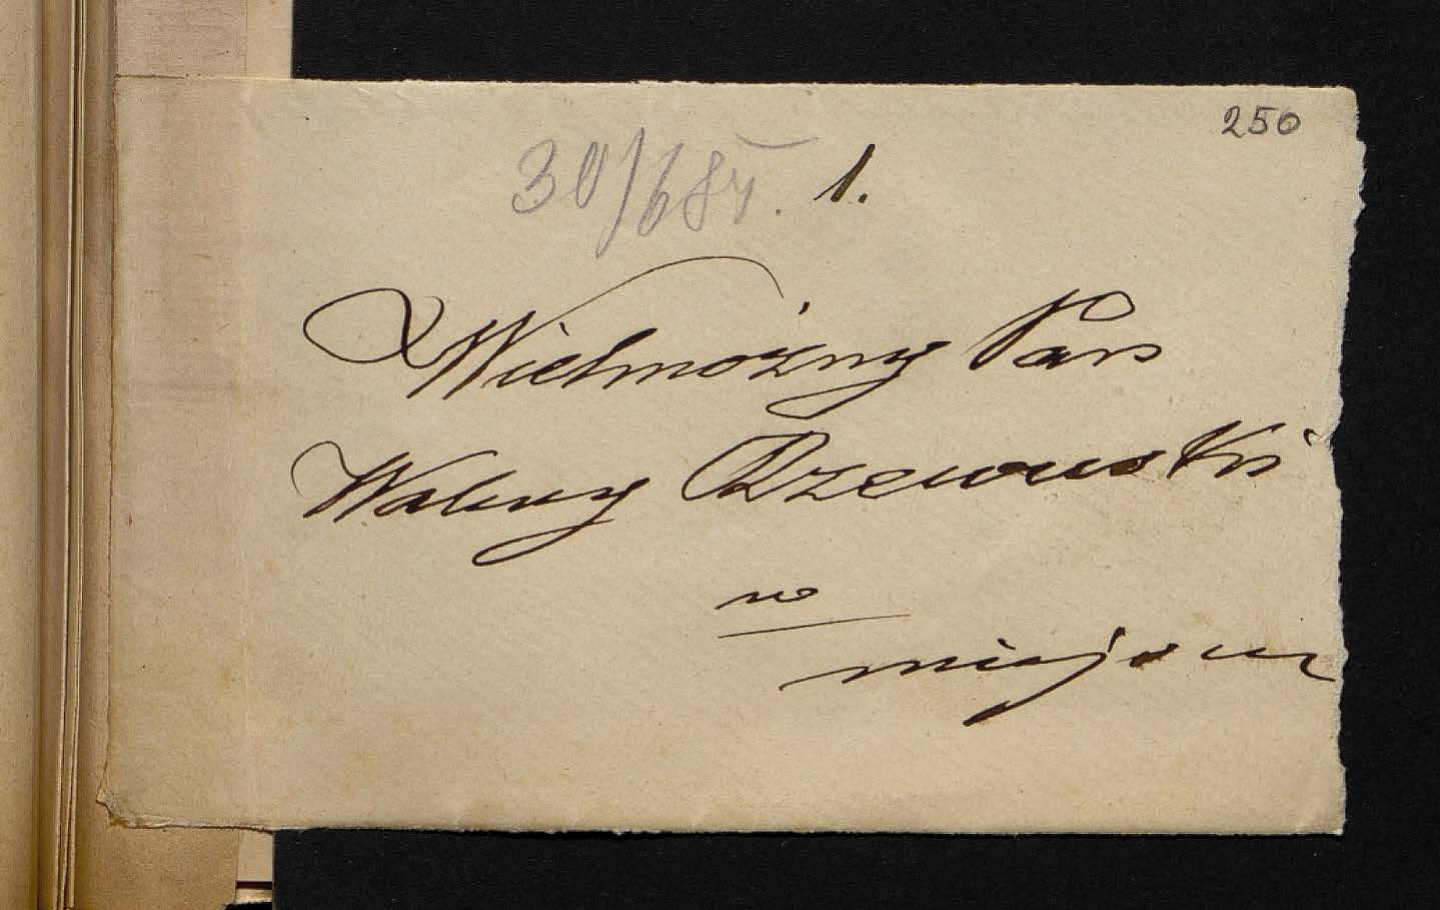 250
30/6 84. 1.
Wielmożny Pan
Walery Rzewuski
w
miejscu